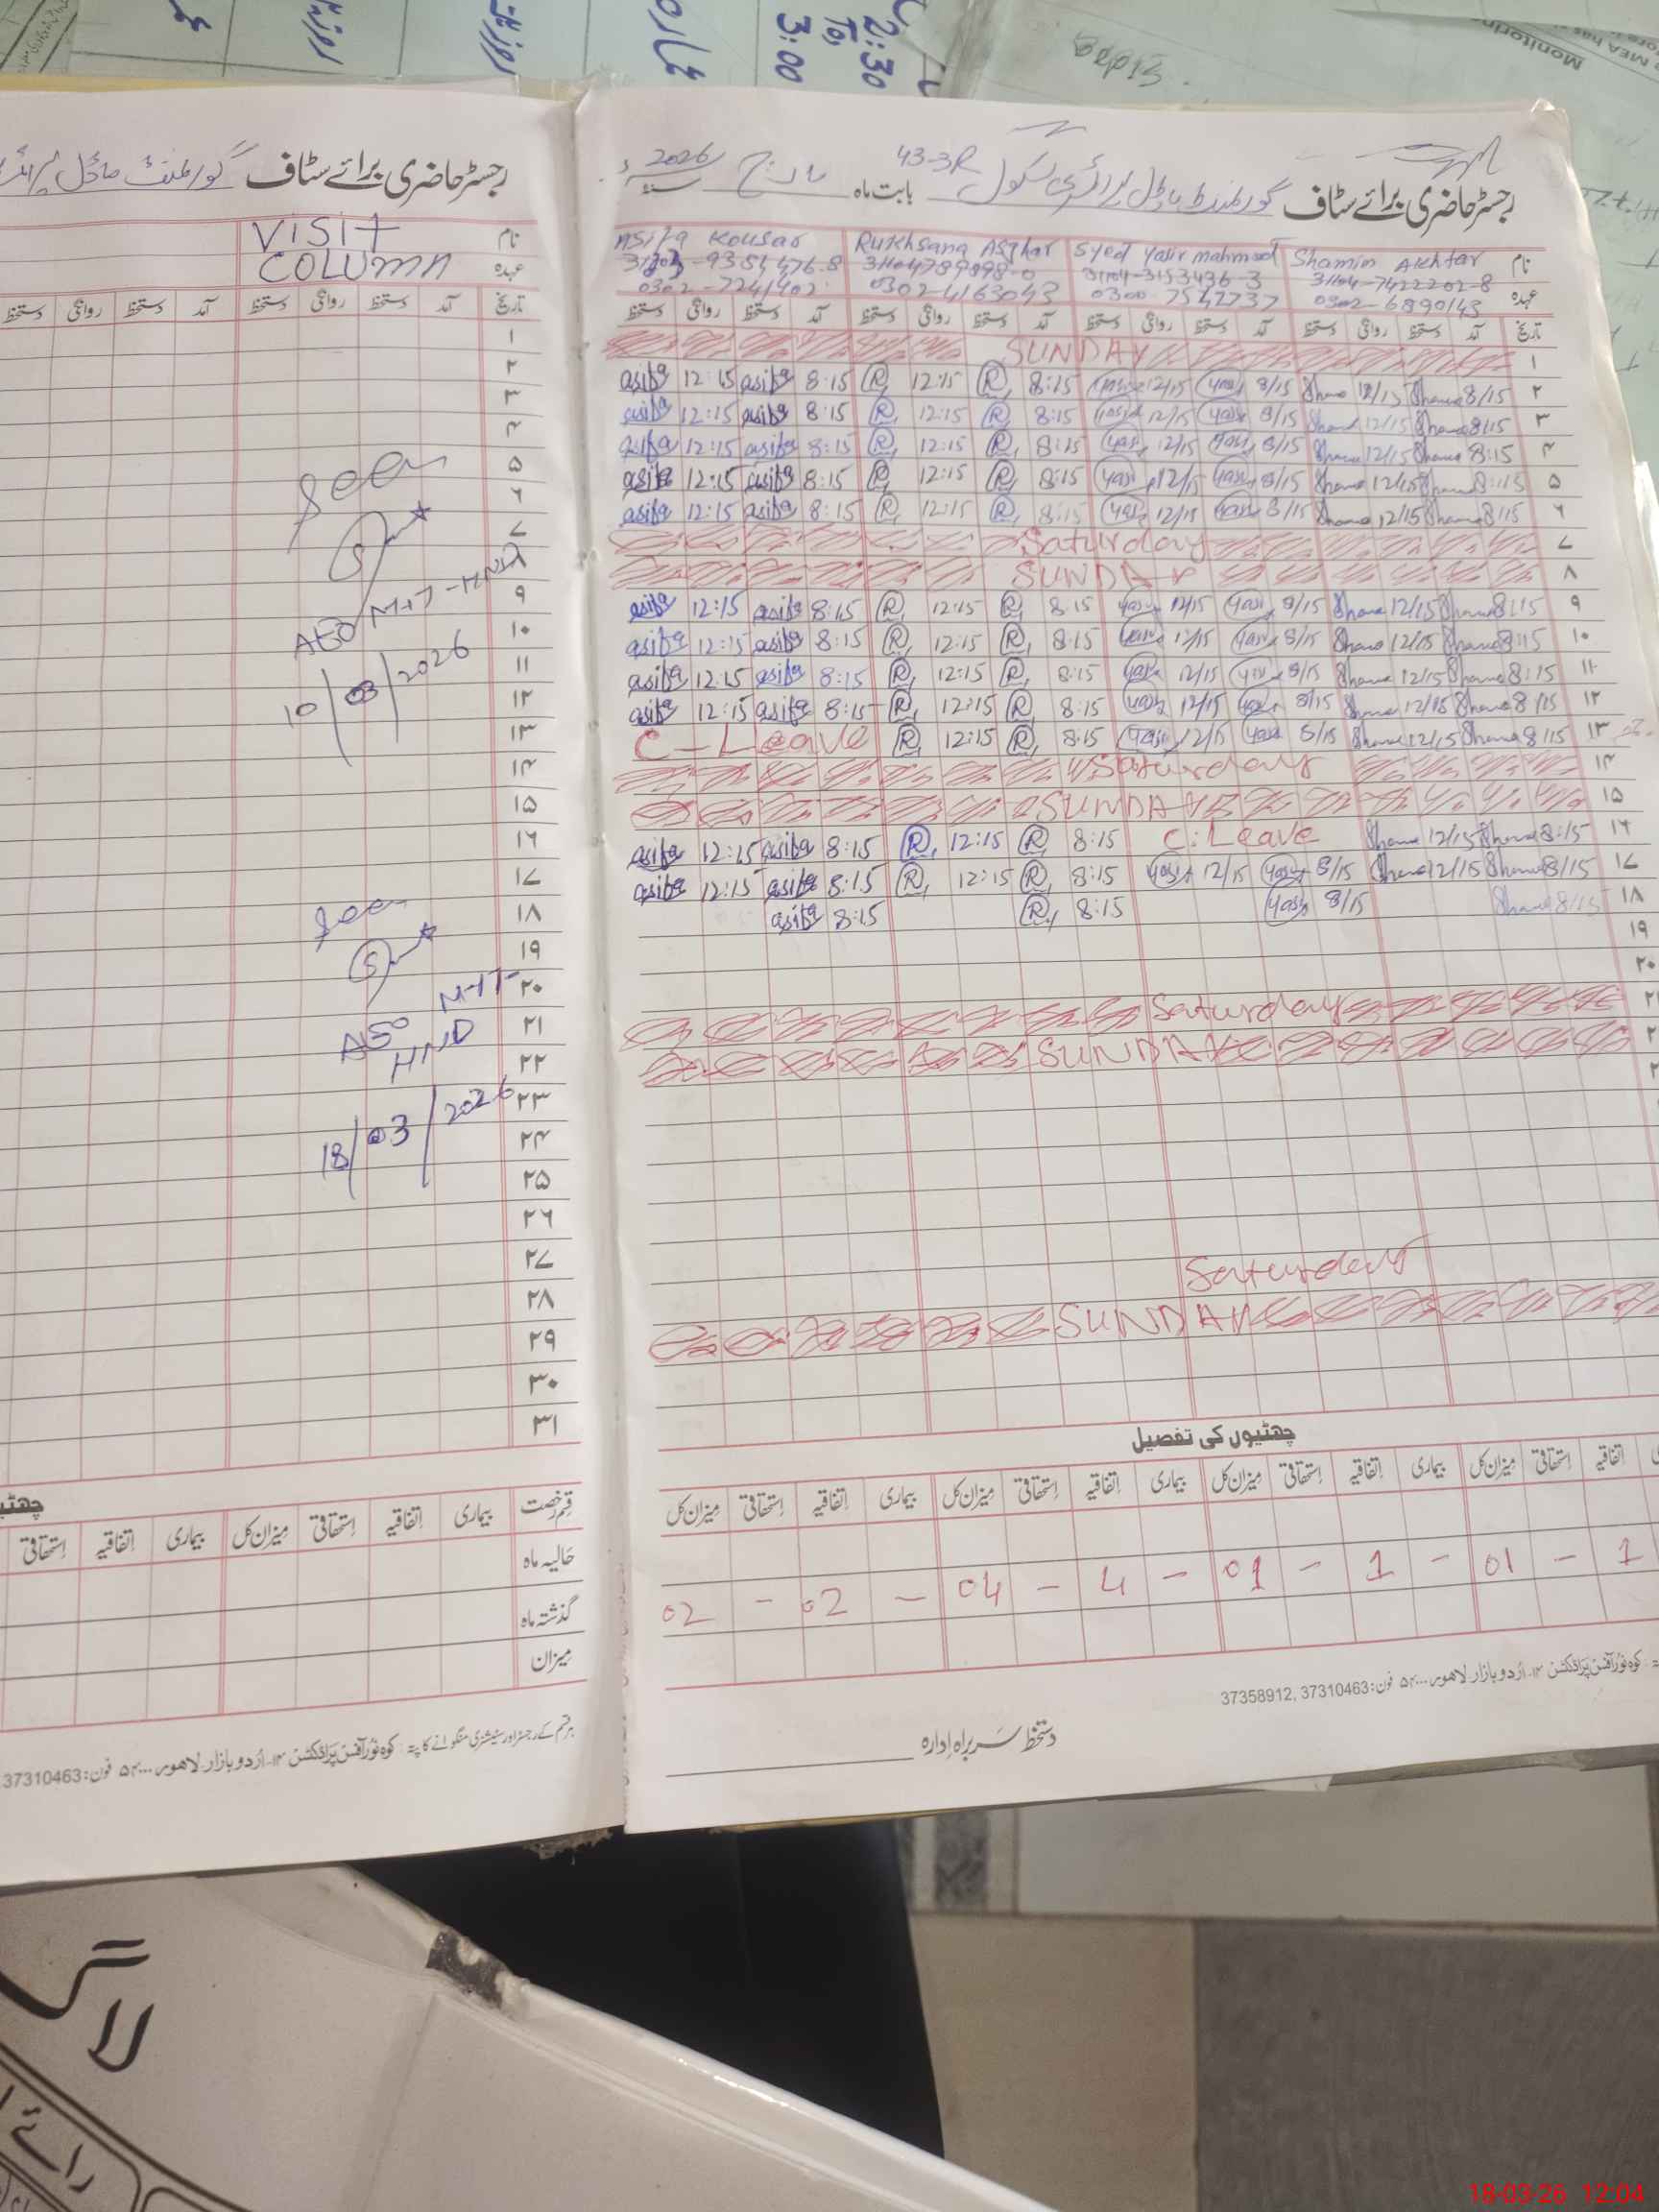 2:30
To,
3:00
Monitorin
رجسٹر حاضری برائے سٹاف گورنمنٹ ماڈل پرائمری سکول 43-3R بابت ماہ مارچ سنہ 2026ء
نام Shamim Akhtar Syed Yasir Mahmood Rukhsana Asghar Asifa Kousar
31104-7422202-8 31104-3153436-3
عہدہ 0302-6890143 0300-7542737 0302-4163043 0302-7241402
تاریخ آمد دستخط روانگی دستخط آمد دستخط روانگی دستخط آمد دستخط روانگی دستخط آمد دستخط روانگی دستخط
۱ SUNDAY
۲ 8/15 Shame 12/15 Shame 8/15 Yasir 12/15 Yasir 8:15 R 12:15 R 8:15 asifa 12:15 asifa
۳ 8:15 Shame 12/15 Shame 8/15 Yasir 12/15 Yasir 8:15 R 12:15 R 8:15 asifa 12:15 asifa
۴ 8:15 Shame 12/15 Shame 8/15 Yasir 12/15 Yasir 8:15 R 12:15 R 8:15 asifa 12:15 asifa
۵ 8:15 Shame 12/15 Shame 8/15 Yasir 12/15 Yasir 8:15 R 12:15 R 8:15 asifa 12:15 asifa
۶ 8:15 Shame 12/15 Shame 8/15 Yasir 12/15 Yasir 8:15 R 12:15 R 8:15 asifa 12:15 asifa
۷ Saturday
۸ SUNDAY
۹ 8:15 Shame 12/15 Shame 8/15 Yasir 12/15 Yasir 8:15 R 12:15 R 8:15 asifa 12:15 asifa
۱۰ 8:15 Shame 12/15 Shame 8/15 Yasir 12/15 Yasir 8:15 R 12:15 R 8:15 asifa 12:15 asifa
۱۱ 8:15 Shame 12/15 Shame 8/15 Yasir 12/15 Yasir 8:15 R 12:15 R 8:15 asifa 12:15 asifa
۱۲ 8/15 Shame 12/15 Shame 8/15 Yasir 12/15 Yasir 8:15 R 12:15 R 8:15 asifa 12:15 asifa
۱۳ 8:15 Shame 12/15 Shame 8/15 Yasir 12/15 Yasir 8:15 R 12:15 R C-Leave
۱۴ Saturday
۱۵ SUNDAY
۱۶ 8:15 Shame 12/15 Shame C.Leave 8:15 R 12:15 R 8:15 asifa 12:15 asifa
۱۷ 8/15 Shame 12/15 Shame 8/15 Yasir 12/15 Yasir 8:15 R 12:15 R 8:15 asifa 12:15 asifa
۱۸ 8/15 Shame 8/15 Yasir 8:15 R 8:15 asifa
۱۹
۲۰
Saturday
SUNDAY
Saturday
SUNDAY
چھٹیوں کی تفصیل
اتفاقیہ استحقاقی میزان کل بیماری اتفاقیہ استحقاقی میزان کل بیماری اتفاقیہ استحقاقی میزان کل بیماری اتفاقیہ استحقاقی میزان کل
1 - 01 - 1 - 01 - 4 - 04 - 02 - 02
کوہ نور آفس پراڈکشن ۱۴۔ اردو بازار۔ لاہور ۵۴۰۰۰ فون: 37310463 ,37358912
دستخط سربراہ ادارہ
رجسٹر حاضری برائے سٹاف گورنمنٹ ماڈل
نام VISIT
عہدہ COLUMN
تاریخ آمد دستخط روانگی دستخط آمد دستخط روانگی دستخط
۱
۲
۳
۴
۵
۶
۷
۸
۹
۱۰
۱۱
۱۲
۱۳
۱۴
۱۵
۱۶
۱۷
۱۸
۱۹
۲۰
۲۱
۲۲
۲۳
۲۴
۲۵
۲۶
۲۷
۲۸
۲۹
۳۰
۳۱
Seen
AEO M-IT-HND
10/03/2026
Seen
AEO M-IT
HND
18/03/2026
قسم رخصت بیماری اتفاقیہ استحقاقی میزان کل بیماری اتفاقیہ استحقاقی
حالیہ ماہ
گذشتہ ماہ
میزان
ہر قسم کے رجسٹر اور سٹیشنری منگوانے کا پتہ: کوہ نور آفس پراڈکشن ۱۴۔ اردو بازار۔ لاہور ۵۴۰۰۰ فون: 37310463
لاگ
رائے
18-03-26 12:04